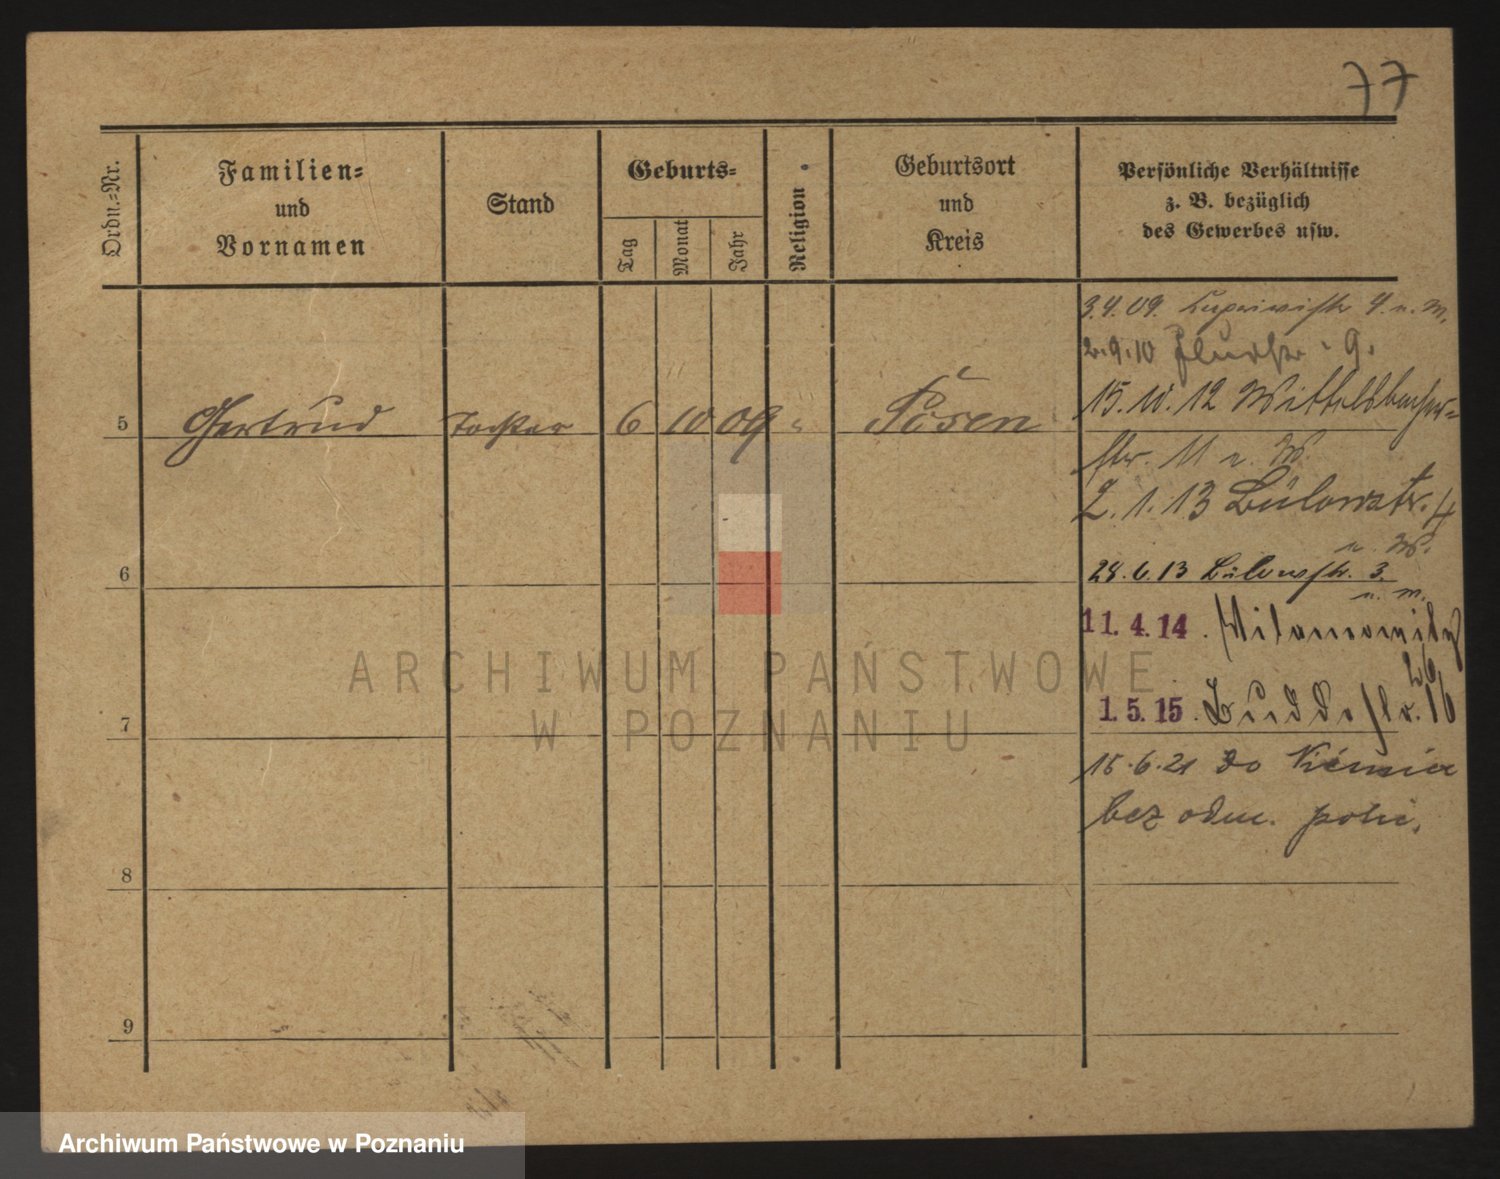 77
Ordn.-Nr.
Familien-
und
Vornamen
Stand
Geburts-
Tag
Monat
Jahr
Religion
Geburtsort
und
Kreis
Persönliche Verhältnisse
z. B. bezüglich
des Gewerbes usw.
3.4.09. 4. u. W.
2.9.10 9.
5 Gertrud Tochter 6 10 09 " Posen
15.10.12 Wittelsbacher-
str. 11 u. W.
2.1.13 Bülowstr. 4
u. W.
6
28.6.13 Bülowstr. 3.
u. W.
11.4.14.
26
7
1.5.15. Buddestr. 16
15.6.21 do Niemiec
bez odm. polic.
8
9
ARCHIWUM PAŃSTWOWE
W POZNANIU
Archiwum Państwowe w Poznaniu